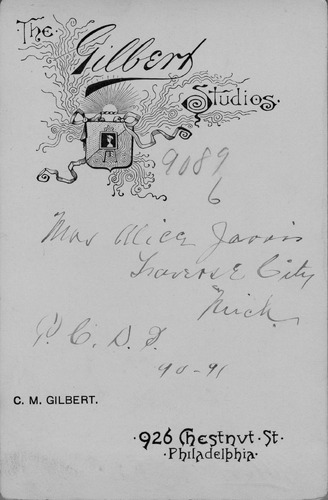 The Gilbert
Studios.
9089
6
Mrs Alice Jarvis
Traverse City
Mich.
P. C. D. S.
90-91
C. M. GILBERT.
926 Chestnut St.
Philadelphia.